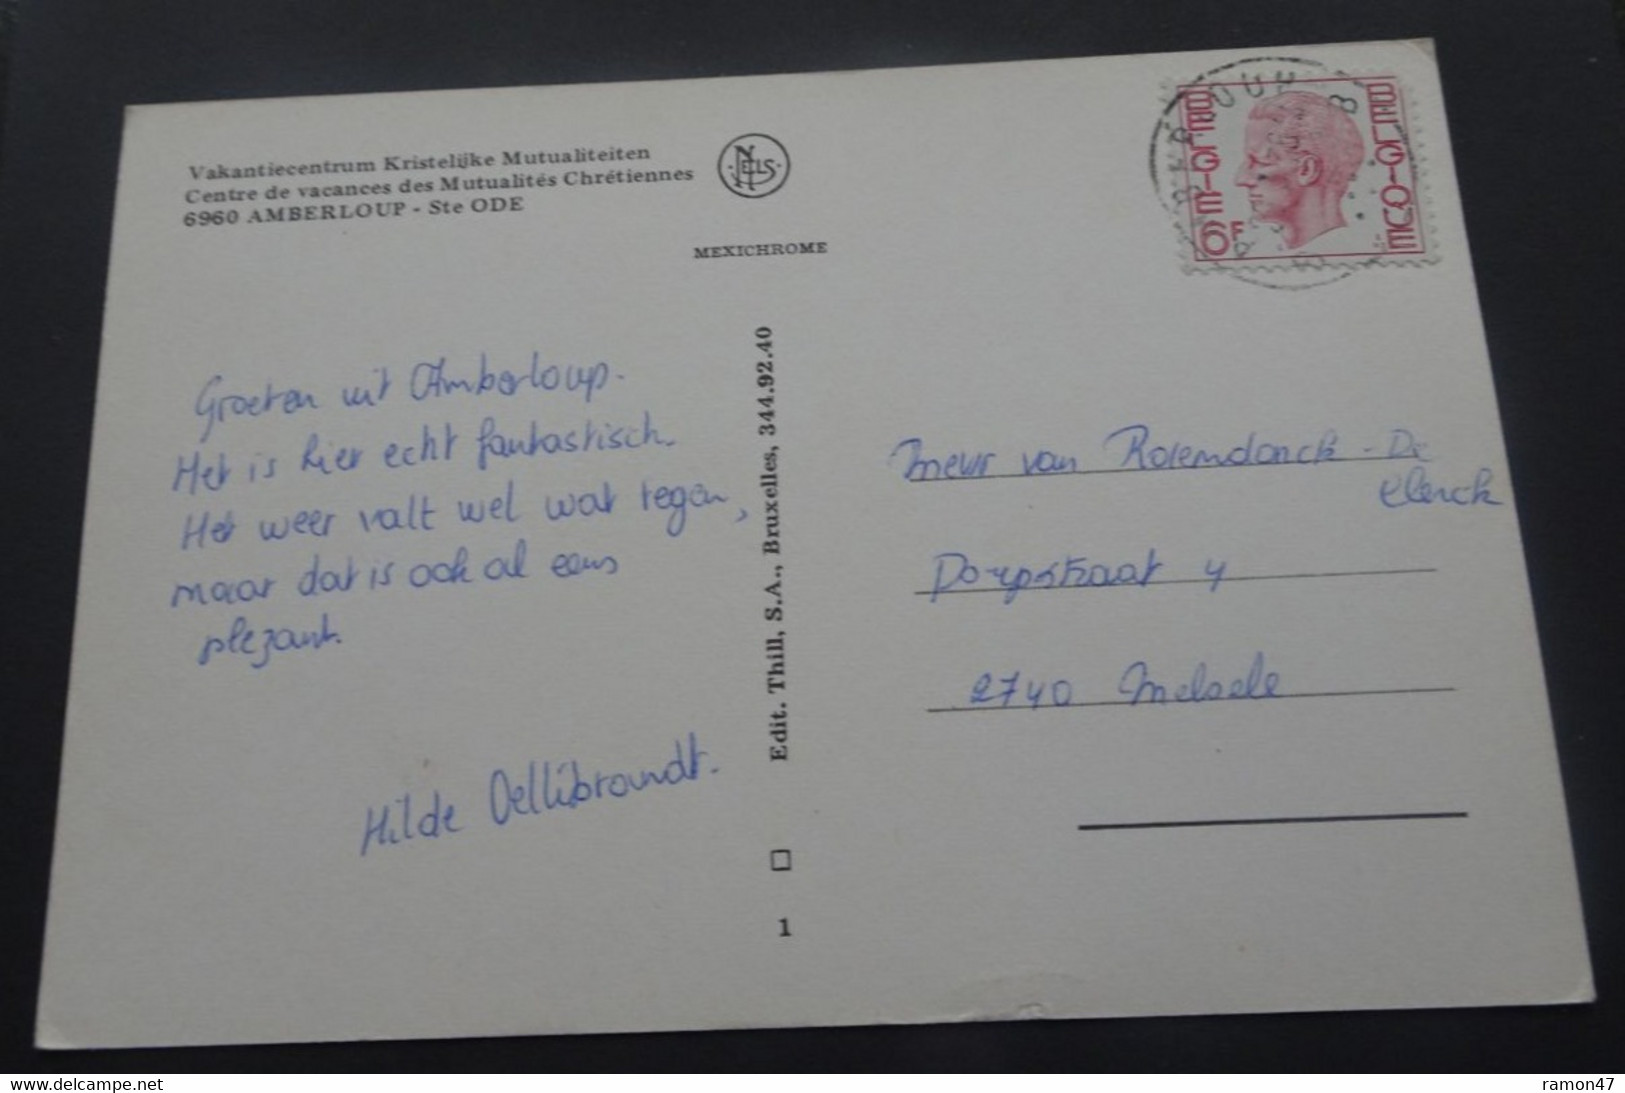 Vakantiecentrum Kristelijke Mutualiteiten
Centre de vacances des Mutualités Chrétiennes
6960 AMBERLOUP - Ste ODE
NELS
MEXICHROME
BELGIE
BELGIQUE
6F
Groeten uit Amberloup.
Het is hier echt fantastisch.
Het weer valt wel wat tegen,
maar dat is ook al eens
plezant.
Hilde Dellibrandt.
Edit. Thill, S.A., Bruxelles, 344.92.40
1
van Roiemdonck - De
Clerck
Dorpstraat 4
2740 Melsele
www.delcampe.net
ramon47